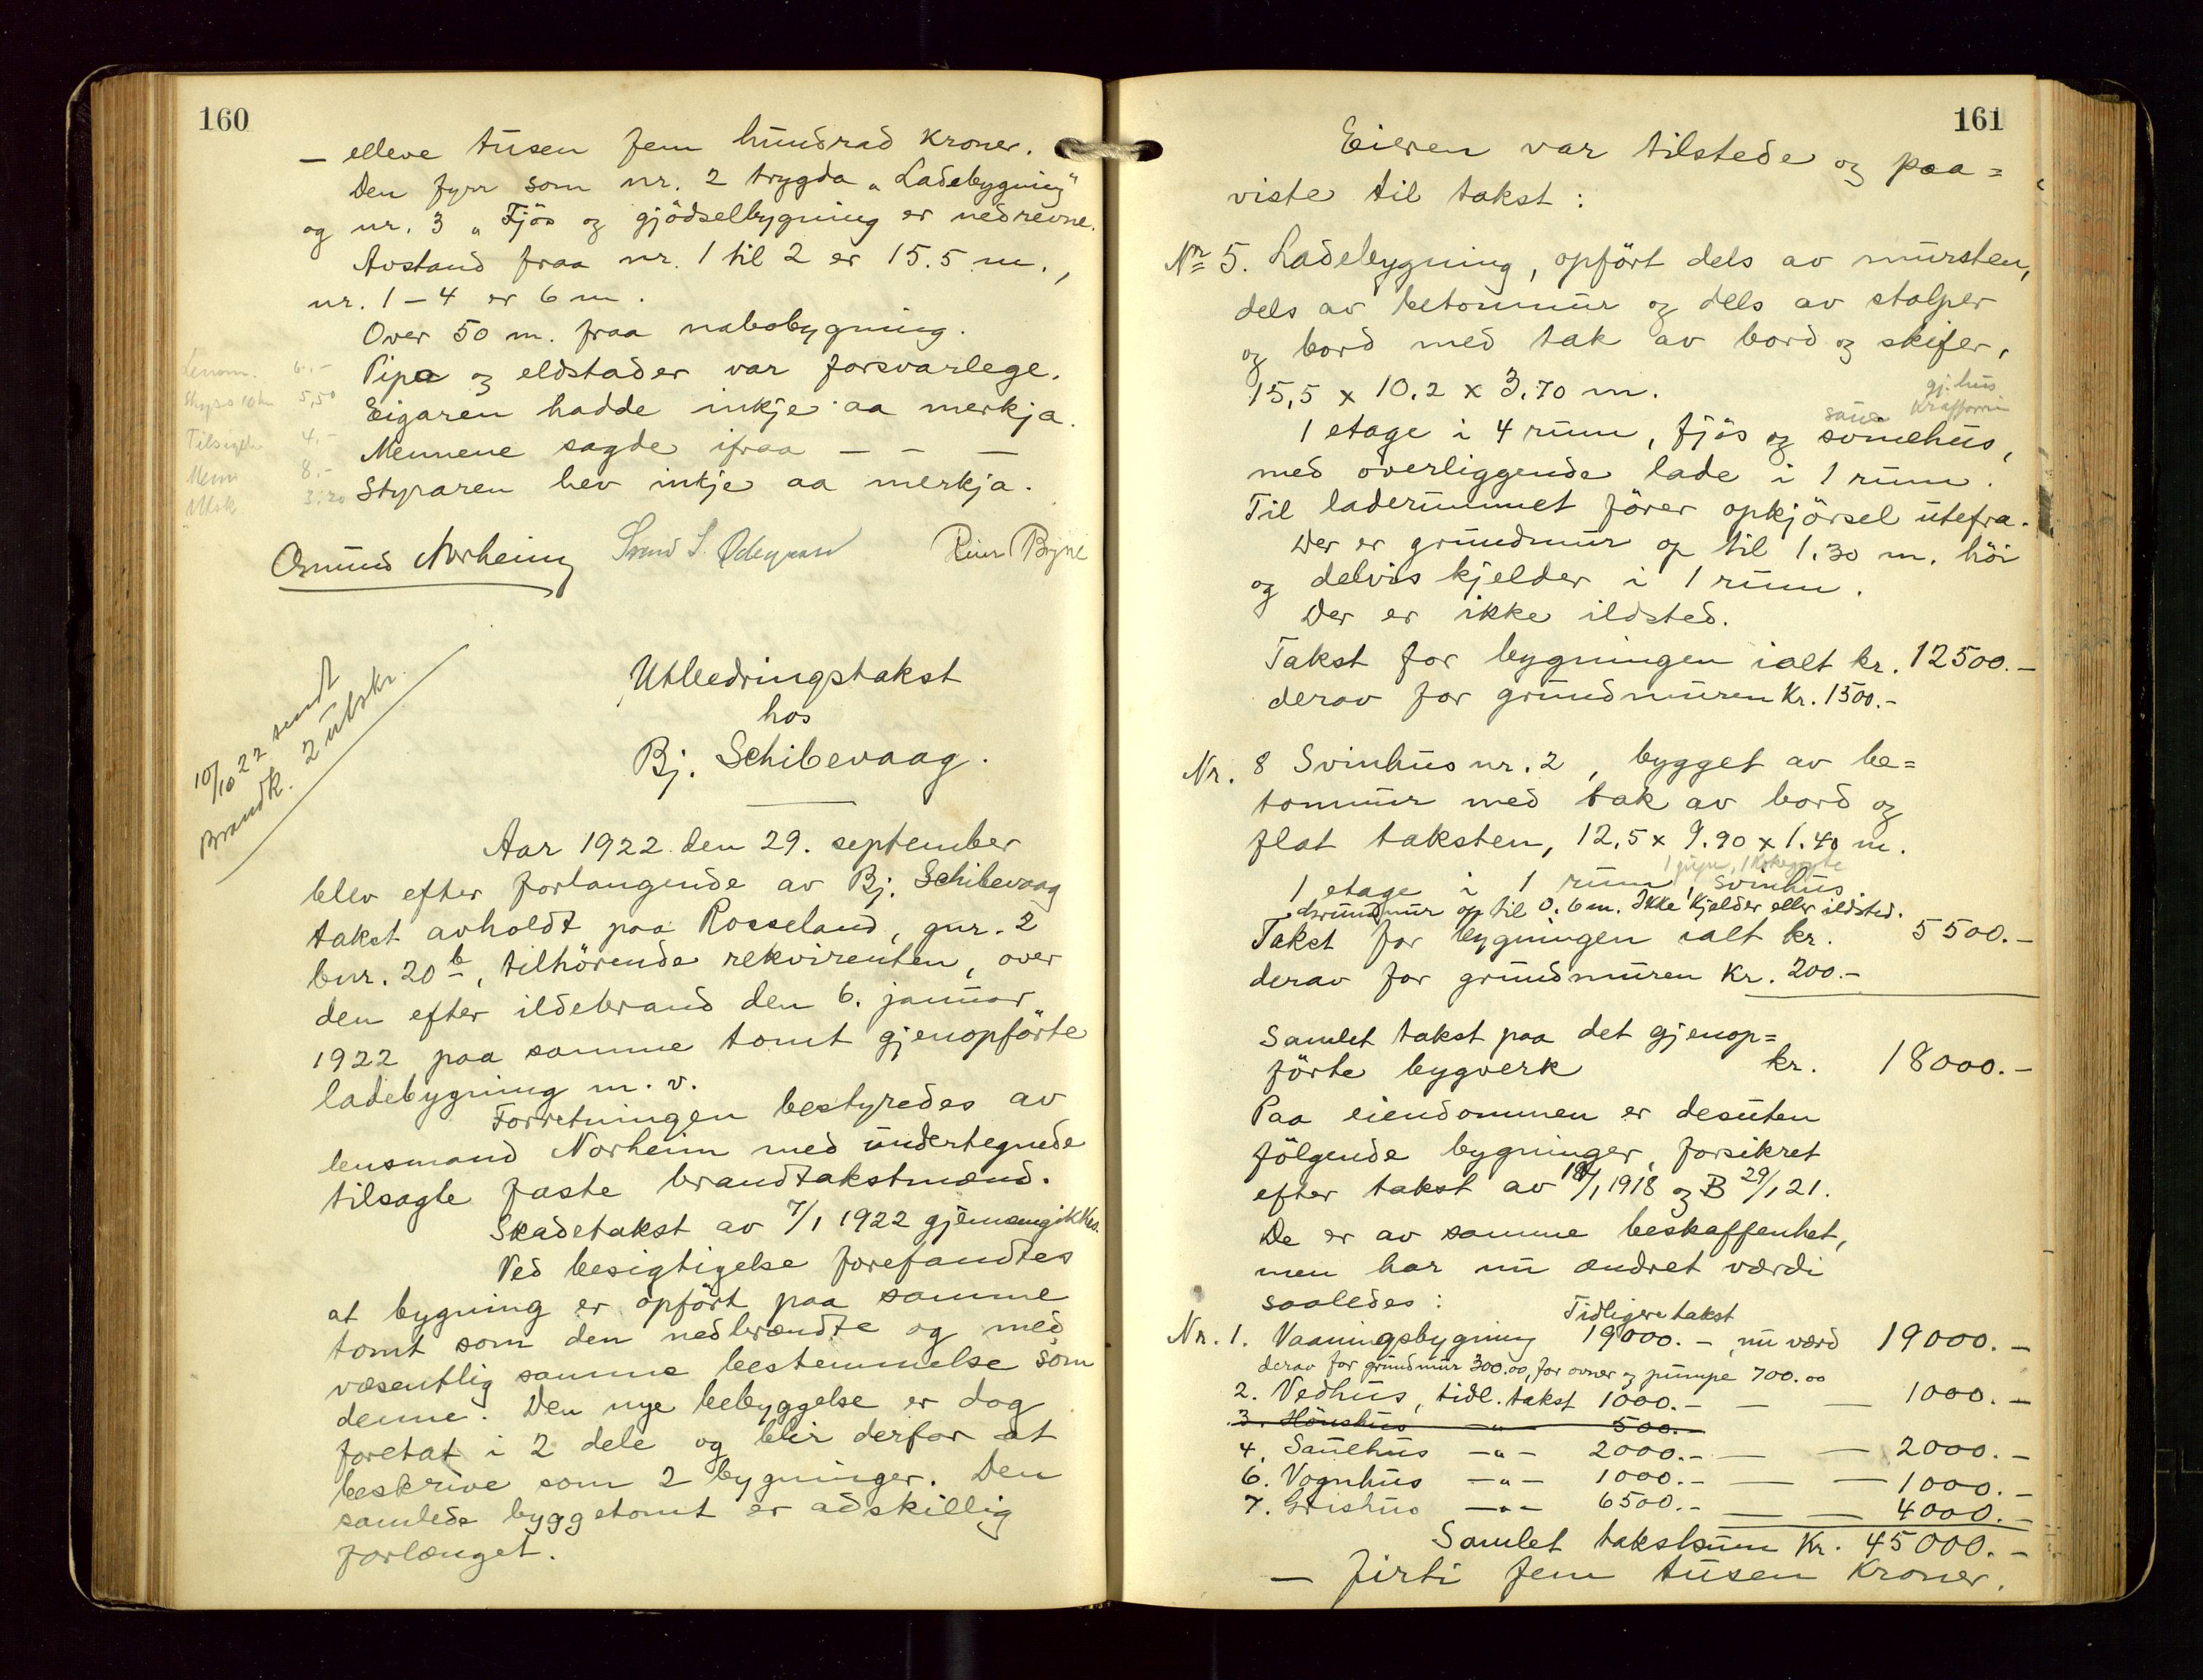 160
— elleve tusen fem hundrad kroner.
Den fyrr som nr. 2 trygda „Ladebygning"
og nr. 3 „Fjös og gjödselbygning er nedrevne.
Avstand fraa nr. 1 til 2 er 15.5 m.,
nr. 1 – 4 er 6 m.
Over 50 m. fraa nabobygning.
Pipa og eldstader var forsvarlege.
Eigaren hadde inkje aa merkja.
Mennene sagde ifraa — — —
Styraren hev inkje aa merkja.
Lensm. 6.–
Skyss 10 km 5,50
Tilsigelse 4.–
Menn 8.–
Utsk. 3.20
Osmund Norheim Svend S. Ödegaard Reier Bryne
10/10 22 sendt
Brandk. 2 utskr.
Utbedringstakst
hos
Bj. Schibevaag.
Aar 1922 den 29. september
blev efter forlangende av Bj. Schibevaag
takst avholdt paa Rosseland, gnr. 2
bnr. 20 b, tilhörende rekvirenten, over
den efter ildebrand den 6. januar
1922 paa samme tomt gjenopförte
ladebygning m. v.
Forretningen bestyredes av
lensmand Norheim med undertegnede
tilsagte faste brandtakstmænd.
Skadetakst av 7/1 1922 gjennemgikkes.
Ved besigtigelse forefandtes
at bygning er opfört paa samme
tomt som den nedbrændte og med
væsentlig samme bestemmelse som
denne. Den nye bebyggelse er dog
foretat i 2 dele og blir derfor at
beskrive som 2 bygninger. Den
samlede byggetomt er adskillig
forlænget.
161
Eieren var tilstede og paa=
viste til takst:
Nr. 5. Ladebygning, opfört dels av mursten,
dels av betonmur og dels av stolper
og bord med tak av bord og skifer,
15,5 x 10.2 x 3.70 m.
gj. hus
saue Kraftforrum
1 etage i 4 rum, fjös og svinehus,
med overliggende lade i 1 rum.
Til laderummet förer opkjörsel utefra.
Der er grundmur op til 1.30 m. höi
og delvis kjelder i 1 rum.
Der er ikke ildsted.
Takst for bygningen ialt kr. 12500.–
derav for grundmuren Kr. 1500.–
Nr. 8 Svinhus nr. 2, bygget av be=
tonmur med tak av bord og
flat taksten, 12.5 x 9.90 x 1.40 m.
1 pipe, 1 Kokegryte
1 etage i 1 rum, svinhus.
Grundmur op til 0.6 m. Ikke kjelder eller ildsted.
Takst for bygningen ialt kr. 5500.–
derav for grundmuren Kr. 200.–
Samlet takst paa det gjenop=
förte bygverk kr. 18000.–
Paa eiendommen er desuten
fölgende bygninger, forsikret
efter takst av 18/1 1918 og B 29/1 21.
De er av samme beskaffenhet,
men har nu ændret værdi
saaledes:
Tidligere takst
Nr. 1. Vaaningsbygning 19000.– nu værd 19000.–
derav for grundmur 300.00, for ovner og pumpe 700.00
2. Vedhus, tidl. takst 1000.– — — 1000.–
3. Hönshus –„– 500.–
4. Sauehus –„– 2000.– — — 2000.–
6. Vognhus –„– 1000.– — — 1000.–
7. Grishus –„– 6500.– — — 4000.–
Samlet takstsum Kr. 45000.–
— firti fem tusen kroner.